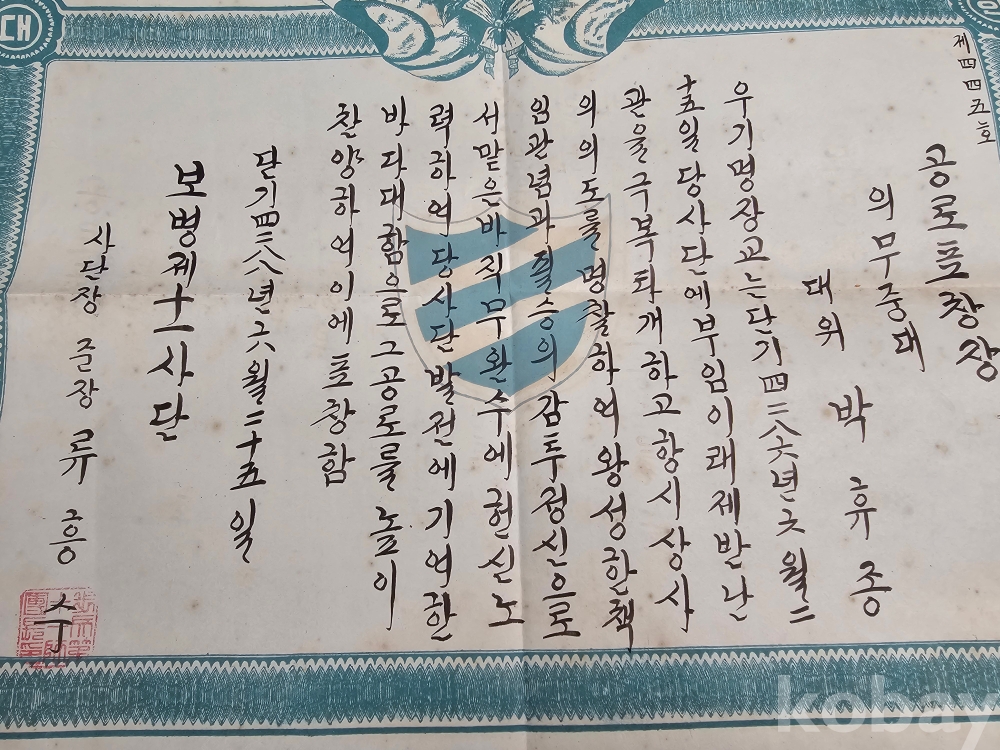 제四四五호
공로표창장
의무중대
대위 박휴종
우기명장교는단기四二八六년六월二
十五일당사단에부임이래제반난
관을극복타개하고항시상사
의의도를명찰하여왕성한책
임관념과필승의감투정신으로
서맡은바직무완수에헌신노
력하여당사단발전에기여한
바다대함으로그공로를높이
찬양하여이에표창함
단기四二八八년六월二十五일
보병제十一사단
사단장 준장 류흥수
대
kobay